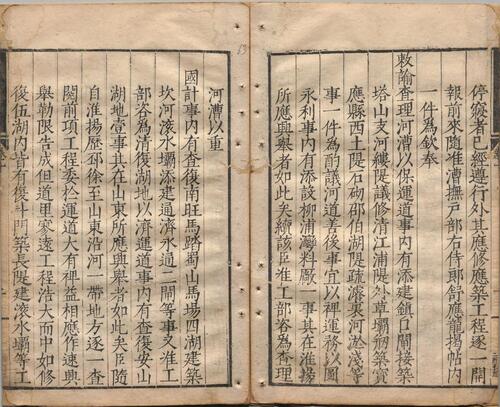 停寢者已經遵行外其應修應築工程逐一開
報前來隨准漕撫戶部右侍郎舒應龍揭帖内
一件為欽奉
敕諭查理河漕以保運道事内有添建鎮口閘接築
塔山支河縷隄議修清江浦隄外草壩剏築寳
應縣西土隄石砌邵伯湖隄疏濬裏河淤淺等
事一件為酌議河道善後事宜以裨運務以圖
永利事内有添設柳浦灣料厰一事其在淮揚
所應興舉者如此矣續該臣准工部咨為查理
河漕以重
國計事内有查復南旺馬踏蜀山馬塲四湖建築
坎河滾水壩添建通濟永通二閘等事又准工
部咨為清復湖地以濟運道事内有查復安山
湖地壹事其在山東所應興舉者如此矣臣隨
自淮揚歷邳徐至山東沿河一帶地方逐一查
閱前項工程委於運道大有裨益相應作速興
舉勒限告成但道里寥遠工程浩大而中如修
復伍湖内皆有復斗門築長隄建滾水壩等工
13